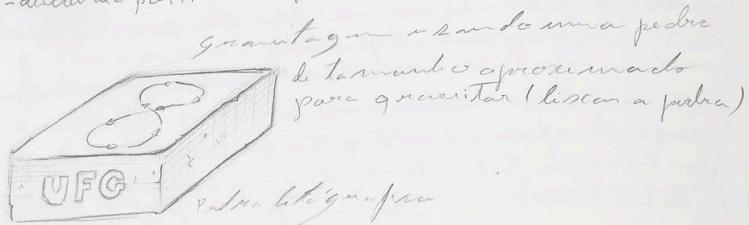 gravitagem usando uma pedra
de tamanho aproximado
para gravitar (lixar a pedra)
UFG
Pedra litógrafica